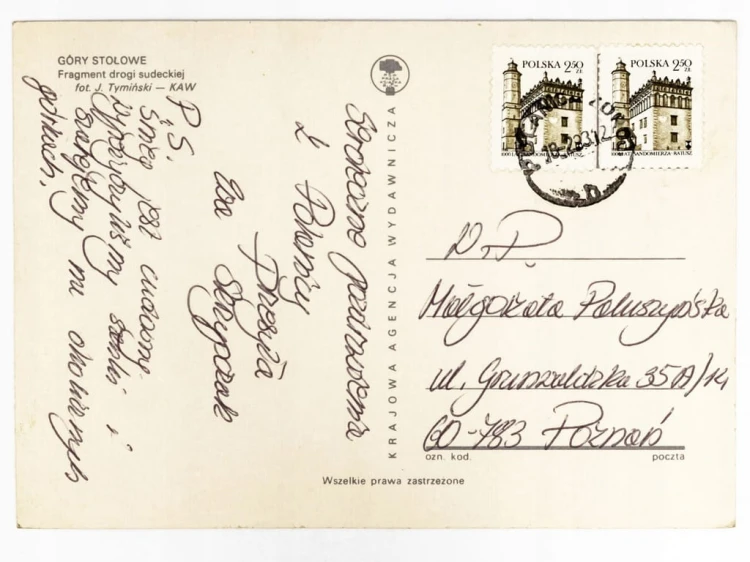 GÓRY STOŁOWE
Fragment drogi sudeckiej
fot. J. Tymiński — KAW
POLSKA 2,50 ZŁ
1000 LAT SANDOMIERZA · RATUSZ
POLSKA 2,50 ZŁ
1000 LAT SANDOMIERZA · RATUSZ
Serdeczne pozdrowienia
z
przesyła
Ewa Skrypczak
P.S.
Śnieg jest cudowny
Wypożyczyliśmy sanki i
szalejemy na okolicznych
górkach.
KRAJOWA AGENCJA WYDAWNICZA
W.P.
Małgorzata Paluszyńska
ul. Grunwaldzka 35A/14
60-783 Poznań
ozn. kod. poczta
Wszelkie prawa zastrzeżone